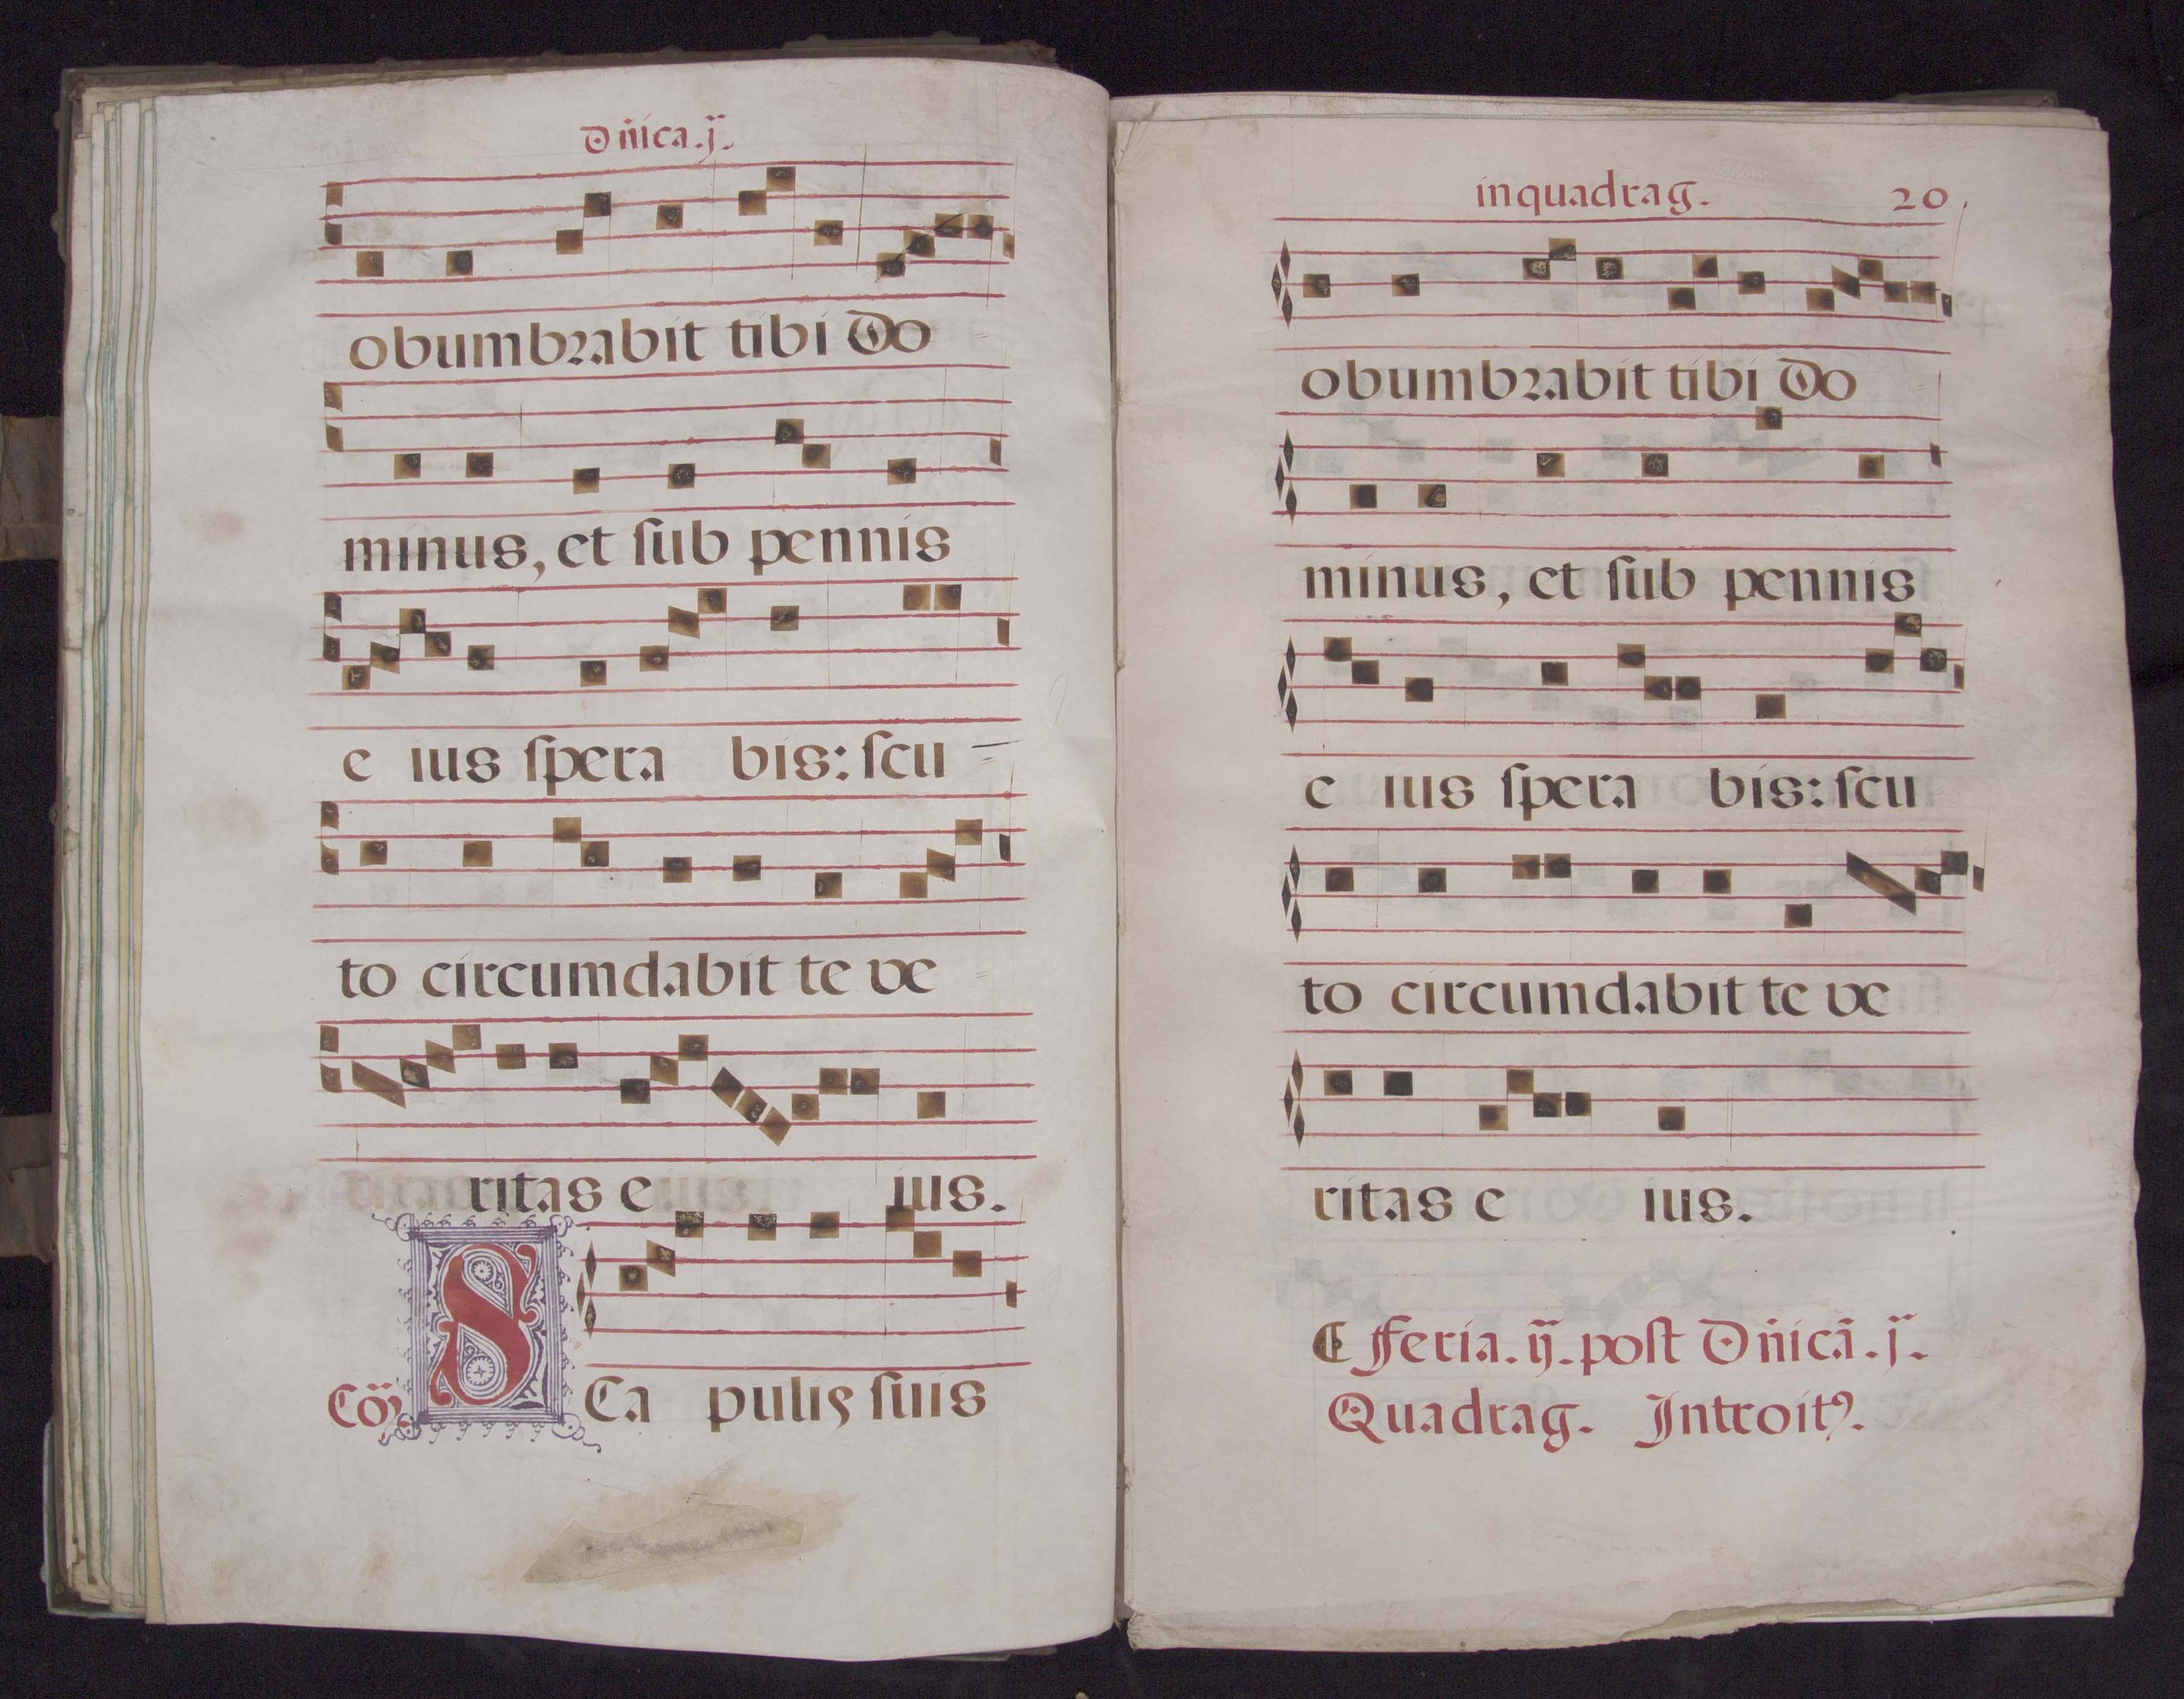 Dn̄ica.j.
obumbrabit tibi Do
minus, et ſub pennis
e ius ſpera bis: ſcu
to circumdabit te ve
ritas e ius.
Cōı. S Ca pulis ſuis
in quadrag. 20
obumbrabit tibi Do
minus, et ſub pennis
e ius ſpera bis: ſcu
to circumdabit te ve
ritas e ius.
Feria. ij. poſt Dn̄icā. j.
Quadrag. Introitꝰ.